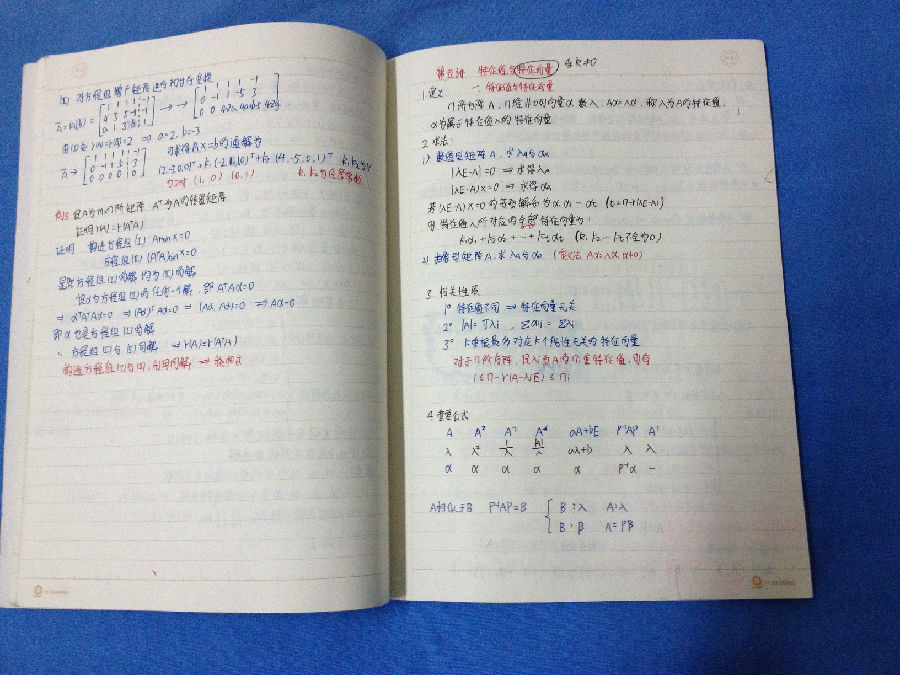 (Ⅱ) 对方程组增广矩阵进行初等行变换
由(Ⅰ)知 r(A)=r(Ā)=2 ⇒ a=2, b=-3
可求得 Ax=b 的通解为
(2,-3,0,0)ᵀ+k₁(-2,1,1,0)ᵀ+k₂(4,-5,0,1)ᵀ k₁,k₂为
为2对 (1,0) (0,1) k₁,k₂为任意常数
设A为m×n阶矩阵 Aᵀ为A的转置矩阵
证明 r(A)=r(AᵀA)
证明 构造方程组(Ⅰ) Aₘₓₙx=0
方程组(Ⅱ) (AᵀA)ₙₓₙx=0
显然方程组(Ⅰ)的解均为(Ⅱ)的解
设α为方程组(Ⅱ)的任何一个解,即 AᵀAα=0
⇒ αᵀAᵀAα=0 ⇒ (Aα)ᵀAα=0 ⇒ (Aα,Aα)=0 ⇒ Aα=0
即α也是方程组(Ⅰ)的解
∴ 方程组(Ⅰ)与(Ⅱ)同解 ⇒ r(A)=r(AᵀA)
构造方程组(Ⅰ)与(Ⅱ),利用同解 ⇒ 秩相等
第五讲 特征值与特征向量
一、特征值与特征向量
1.定义
n阶方阵A,n维非0列向量α,数λ,Aα=λα,称λ为A的特征值,
α为属于特征值λ的特征向量
2.求法:
1) 数值型矩阵A,求λ与α
|λE-A|=0 ⇒ 求得λ
(λE-A)x=0 ⇒ 求得α
若(λE-A)x=0的基础解系为α₁ α₂ … αt (t=n-r(λE-A))
则特征值λ所对应的全部特征向量为:
k₁α₁+k₂α₂+…+ktαt (k₁,k₂…kt不全为0)
2) 抽象型矩阵A,求λ与α (定义法 Aα=λα,α≠0)
3.相关性质
1° 特征值不同 ⇒ 特征向量无关
2° |A|=∏λi , Σaii=Σλi
3° k重根最多对应k个线性无关的特征向量
对于n阶方阵,设λi为A的ni重特征值,则有
1≤n-r(A-λiE)≤ni
4.重要公式
A A² A⁻¹ A* aA+bE P⁻¹AP Aᵀ
λ λ² 1/λ |A|/λ aλ+b λ λ
α α α α α P⁻¹α —
A相似于B P⁻¹AP=B { B:λ A=λ
B:β A=Pβ